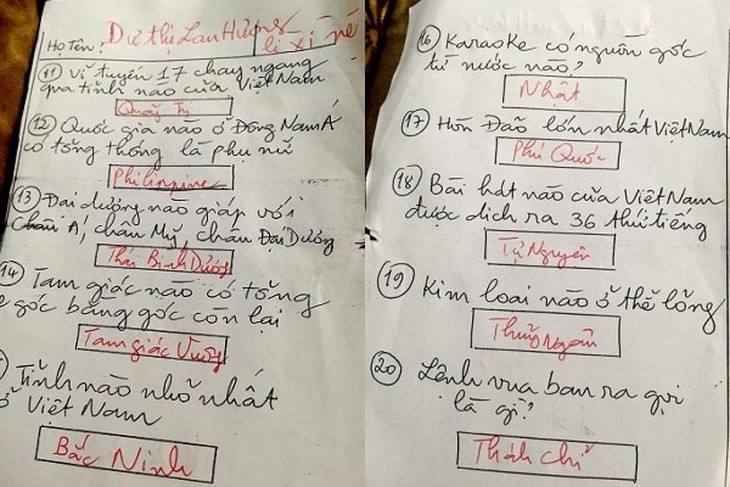 Họ Tên: Dư thị Lan Hương
lì xì né
11 Vĩ tuyến 17 chạy ngang
qua tỉnh nào của Việt Nam
Quảng Trị
12 Quốc gia nào ở Đông Nam Á
có tổng thống là phụ nữ
Philippine
13 Đại dương nào giáp với
Châu Á, châu Mỹ, châu Đại Dương
Thái Bình Dương
14 Tam giác nào có tổng
góc bằng góc còn lại
Tam giác Vuông
Tỉnh nào nhỏ nhất
ở Việt Nam
Bắc Ninh
16 Karaoke có nguồn gốc
từ nước nào?
Nhật
17 Hòn Đảo lớn nhất Việt Nam
Phú Quốc
18 Bài hát nào của Việt Nam
được dịch ra 36 thứ tiếng
Tự Nguyện
19 Kim loại nào ở thể lỏng
Thủy Ngân
20 Lệnh vua ban ra gọi
là gì?
Thánh chỉ